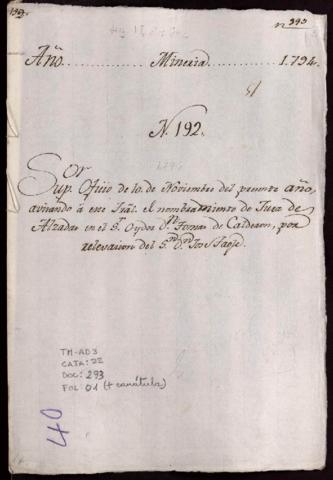 Año. Mineria 1.794.
51
N. 192.
Supor. Oficio de 10. de Noviembre del presente año,
avisando á este Tral. el nombramiento de Juez de
Alzadas en el Sr. Oydor Dn. Tomas de Calderon, por
relevacion del Sor. Dn. Jose
TM-AD3
CATA: 22
DOC: 293
FOL: 01 (+ carátula)
40